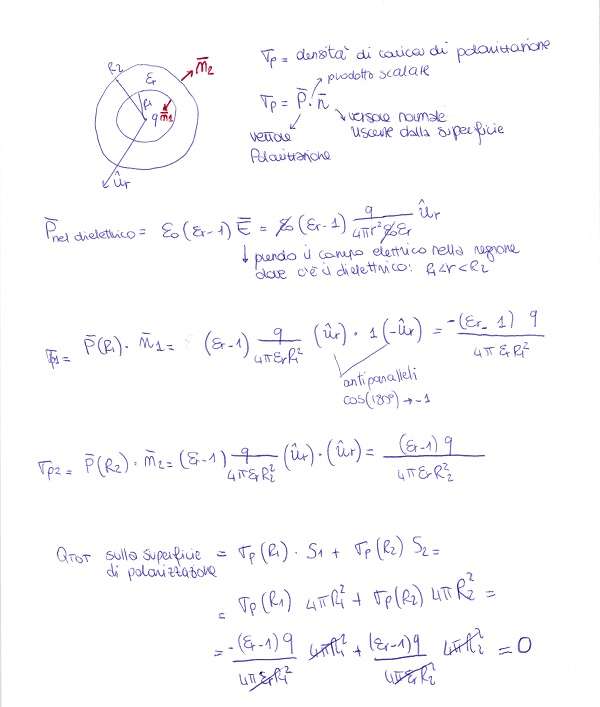 R2
εr
n̄2
R1
q n̄1
ûr
σp = densità di carica di polarizzazione
prodotto scalare
σp = P̄ · n̄
versore normale
uscente dalla superficie
vettore
Polarizzazione
P̄nel dielettrico = ε0 (εr-1) Ē = ε0 (εr-1) q/4πr²ε0εr ûr
prendo il campo elettrico nella regione
dove c'è il dielettrico: R1<r<R2
σp1 = P̄(R1) · n̄1 = (εr-1) q/4πεrR1² (ûr) · 1 (-ûr) = -(εr-1) q/4π εrR1²
antiparalleli
cos(180°) → -1
σp2 = P̄(R2) · n̄2 = (εr-1) q/4πεrR2² (ûr) · (ûr) = (εr-1) q/4πεrR2²
QTOT sulla superficie = σp(R1) · S1 + σp(R2) S2 =
di polarizzazione
= σp(R1) 4πR1² + σp(R2) 4πR2² =
= -(εr-1) q/4πεrR1² 4πR1² + (εr-1)q/4πεrR2² 4πR2² = 0